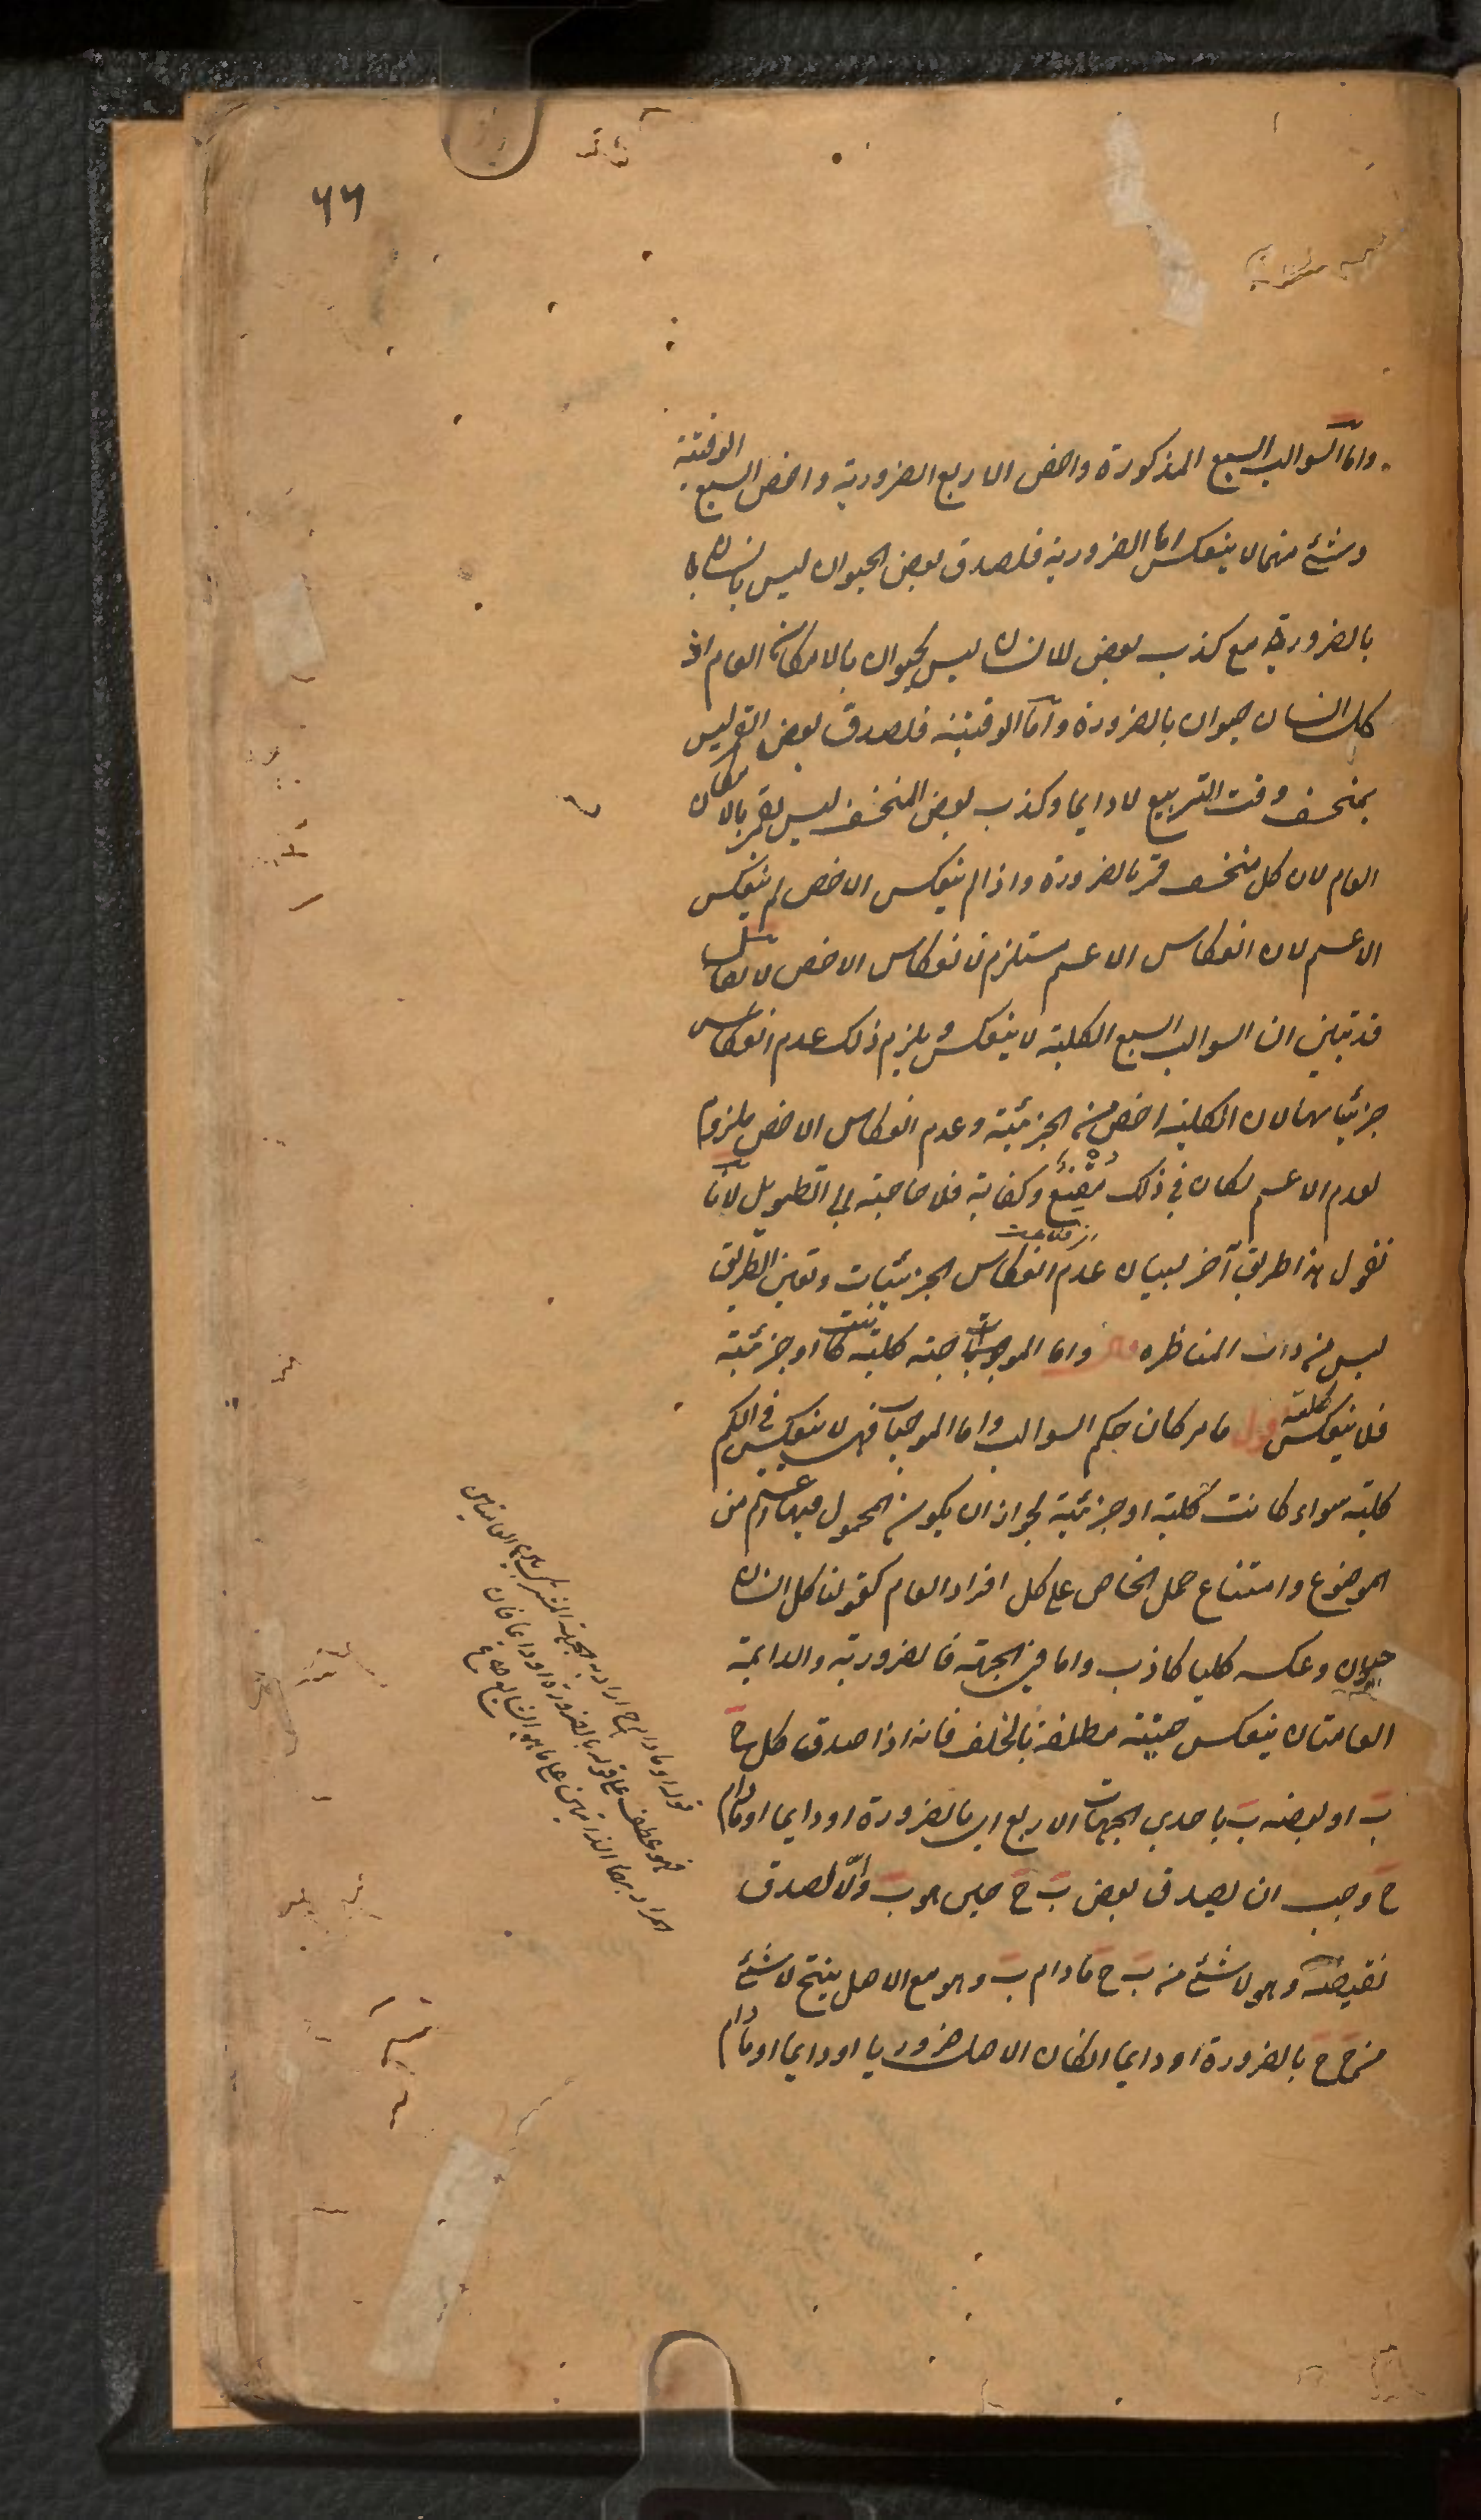 ٦٦
واما السوالب السبع المذكورة واخص الاربع الضرورية واخص السبع الوقتية
وشئ منهما لا ينعكس اما الضرورية فلصدق بعض الحيوان ليس بانسان
بالضرورة مع كذب بعض الانسان ليس بحيوان بالامكان العام اذ
كل انسان حيوان بالضرورة واما الوقتية فلصدق بعض القمر ليس
بمنخسف وقت التربيع لا دايما وكذب بعض المنخسف ليس بقمر بالامكان
العام لان كل منخسف قمر بالضرورة واذا لم ينعكس الاخص لم ينعكس
الاعم لان انعكاس الاعم مستلزم لانعكاس الاخص لا يقال
قد تبين ان السوالب السبع الكلية لا ينعكس ويلزم ذلك عدم انعكاس
جزئياتها لان الكلية اخص من الجزئية وعدم انعكاس الاخص ملزوم
لعدم الاعم لكان في ذلك مقنع وكفاية فلا حاجة الى التطويل لانا
نقول هذا طريق آخر لبيان عدم انعكاس الجزئيات وتعين الطريق
ليس من داب المناظره واما الموجبة كلية كانت او جزئية
فلا ينعكس كلية اقول ما مر كان حكم السوالب واما الموجبات فهي لا ينعكس في الكم
كلية سواء كانت كلية او جزئية لجواز ان يكون المحمول فيها اعم من
الموضوع وامتناع حمل الخاص على كل افراد العام كقولنا كل انسان
حيوان وعكسه كليا كاذب واما في الجهة فالضرورية والدايمة
العامتان ينعكس حينية مطلقة بالخلف فانه اذا صدق كل ج
ب او بعضه ب باحدى الجهات الاربع اي بالضرورة او دايما او مادام
ج وجب ان يصدق بعض ب ج حين هو ب والا لصدق
نقيضه وهو لا شئ من ب ج مادام ب وهو مع الاصل ينتج لا شئ
من ج ج بالضرورة او دايما ان كان الاصل ضروريا او دايما او مادام